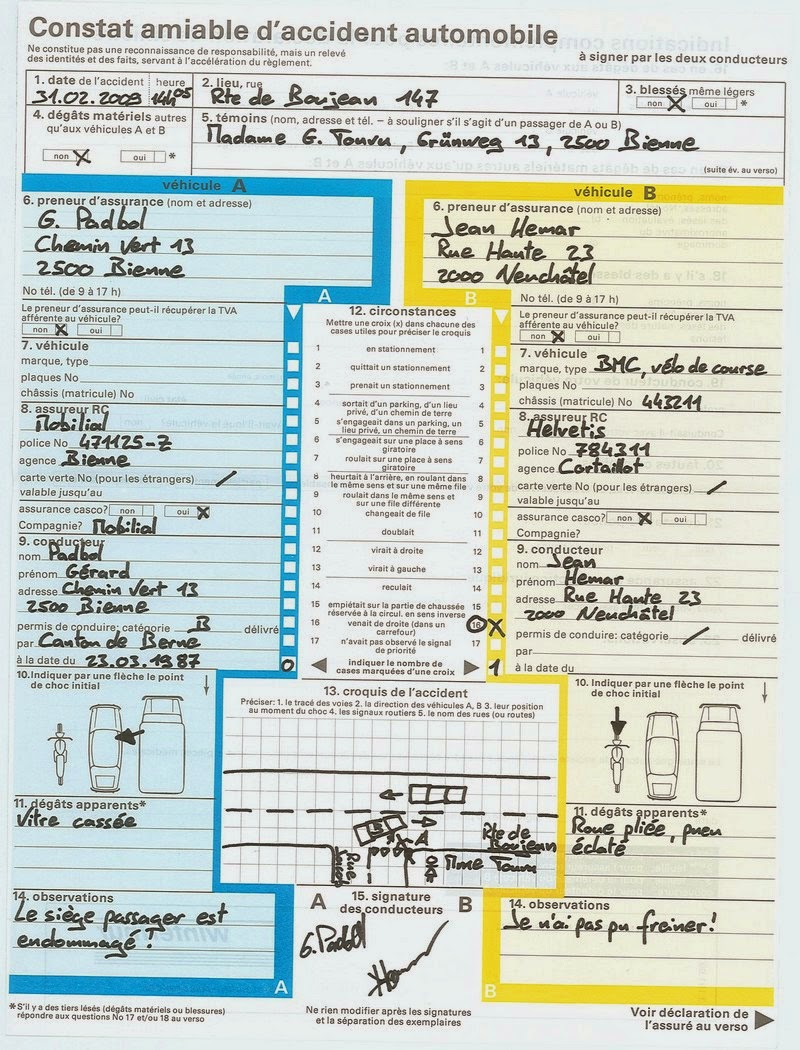 Constat amiable d'accident automobile
Ne constitue pas une reconnaissance de responsabilité, mais un relevé
des identités et des faits, servant à l'accélération du règlement.
à signer par les deux conducteurs
1. date de l'accident heure
31.02.2009 14h05
2. lieu, rue
Rte de Boujean 147
3. blessés même légers
non X oui *
4. dégâts matériels autres
qu'aux véhicules A et B
non X oui *
5. témoins (nom, adresse et tél. – à souligner s'il s'agit d'un passager de A ou B)
Madame G. Tourn, Grünweg 13, 2500 Bienne
(suite év. au verso)
véhicule A
6. preneur d'assurance (nom et adresse)
G. Padbol
Chemin Vert 13
2500 Bienne
No tél. (de 9 à 17 h)
Le preneur d'assurance peut-il récupérer la TVA
afférente au véhicule?
non X oui
7. véhicule
marque, type
plaques No
châssis (matricule) No
8. assureur RC
Mobilial
police No 471125-Z
agence Bienne
carte verte No (pour les étrangers) /
valable jusqu'au
assurance casco? non oui X
Compagnie? Mobilial
9. conducteur
nom Padbol
prénom Gérard
adresse Chemin Vert 13
2500 Bienne
permis de conduire: catégorie B délivré
par Canton de Berne
à la date du 23.03.1987
10. Indiquer par une flèche le point
de choc initial
11. dégâts apparents*
Vitre cassée
14. observations
Le siège passager est
endommagé!
A
12. circonstances
Mettre une croix (x) dans chacune des
cases utiles pour préciser le croquis
A B
1 en stationnement 1
2 quittait un stationnement 2
3 prenait un stationnement 3
4 sortait d'un parking, d'un lieu
privé, d'un chemin de terre 4
5 s'engageait dans un parking, un
lieu privé, un chemin de terre 5
6 s'engageait sur une place à sens
giratoire 6
7 roulait sur une place à sens
giratoire 7
8 heurtait à l'arrière, en roulant dans
le même sens et sur une même file 8
9 roulait dans le même sens et
sur une file différente 9
10 changeait de file 10
11 doublait 11
12 virait à droite 12
13 virait à gauche 13
14 reculait 14
15 empiétait sur la partie de chaussée
réservée à la circul. en sens inverse 15
16 venait de droite (dans un
carrefour) 16 X
17 n'avait pas observé le signal
de priorité 17
0 indiquer le nombre de
cases marquées d'une croix 1
13. croquis de l'accident
Préciser: 1. le tracé des voies 2. la direction des véhicules A, B 3. leur position
au moment du choc 4. les signaux routiers 5. le nom des rues (ou routes)
A
Rte de
Boujean
Rue
Mme Tourn
A 15. signature B
des conducteurs
G. Padbol
Ne rien modifier après les signatures
et la séparation des exemplaires
véhicule B
6. preneur d'assurance (nom et adresse)
Jean Hemar
Rue Haute 23
2000 Neuchâtel
No tél. (de 9 à 17 h)
Le preneur d'assurance peut-il récupérer la TVA
afférente au véhicule?
non X oui
7. véhicule
marque, type BMC, vélo de course
plaques No
châssis (matricule) No 443211
8. assureur RC
Helvetis
police No 784311
agence Cortaillot
carte verte No (pour les étrangers) /
valable jusqu'au
assurance casco? non X oui
Compagnie?
9. conducteur
nom Jean
prénom Hemar
adresse Rue Haute 23
2000 Neuchâtel
permis de conduire: catégorie / délivré
par
à la date du
10. Indiquer par une flèche le point
de choc initial
11. dégâts apparents*
Roue pliée, pneu
éclaté
14. observations
Je n'ai pas pu freiner!
B
* S'il y a des tiers lésés (dégâts matériels ou blessures)
répondre aux questions No 17 et/ou 18 au verso
Voir déclaration de
l'assuré au verso